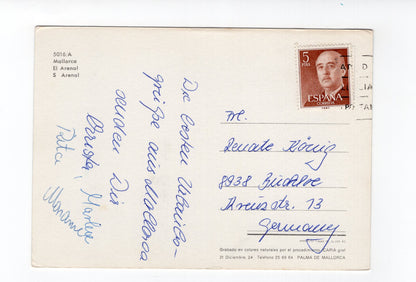 5016 A
Mallorca
El Arenal
S Arenal
Die besten Urlaubs-
grüße aus Mallorca
senden Dir
Christa, Marlene
Petra
Marianne
5
PTAS
ESPAÑA
CORREOS
Frl.
Renate König
8938 Buchloe
Arenstr. 13
Germany
Grabado en color natural por el procedimiento ICARIA graf
21 Diciembre 24 Teléfono 25 69 64 PALMA DE MALLORCA